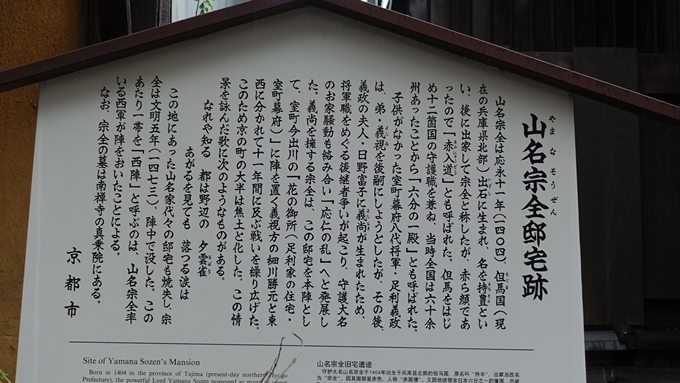 山名宗全邸宅跡
やまなそうぜん
山名宗全は応永十一年(一四〇四)、但馬国(現
在の兵庫県北部)出石に生まれ、名を持豊とい
い、後に出家して宗全と称したが、赤ら顔であ
ったので「赤入道」とも呼ばれた。但馬をはじ
め十二箇国の守護職を兼ね、当時全国は六十余
州あったことから「六分の一殿」とも呼ばれた。
子供がなかった室町幕府八代将軍・足利義政
は、弟・義視を後嗣にしようとしたが、その後、
義政の夫人・日野富子に義尚が生まれたため、
将軍職をめぐる後継者争いが起こり、守護大名
のお家騒動も絡み合い「応仁の乱」へと発展し
た。義尚を擁する宗全は、この邸宅を本陣とし
て、室町今出川の「花の御所(足利家の住宅・
室町幕府)」に陣を置く義視方の細川勝元と東
西に分かれて十一年間に及ぶ戦いを繰り広げた。
このため京の町の大半は焦土と化した。この情
景を詠んだ歌に次のようなものがある。
なれや知る 都は野辺の 夕雲雀
あがるを見ても 落つる涙は
この地にあった山名家代々の邸宅も焼失し、宗
全は文明五年(一四七三)、陣中で没した。この
あたり一帯を「西陣」と呼ぶのは、山名宗全率
いる西軍が陣をおいたことによる。
なお、宗全の墓は南禅寺の真乗院にある。
京都市
Site of Yamana Sozen's Mansion
Born in 1404 in the province of Tajima (present-day northern Hyogo
Prefecture), the powerful Lord Yamana Sozen possessed as many
山名宗全旧宅遗迹